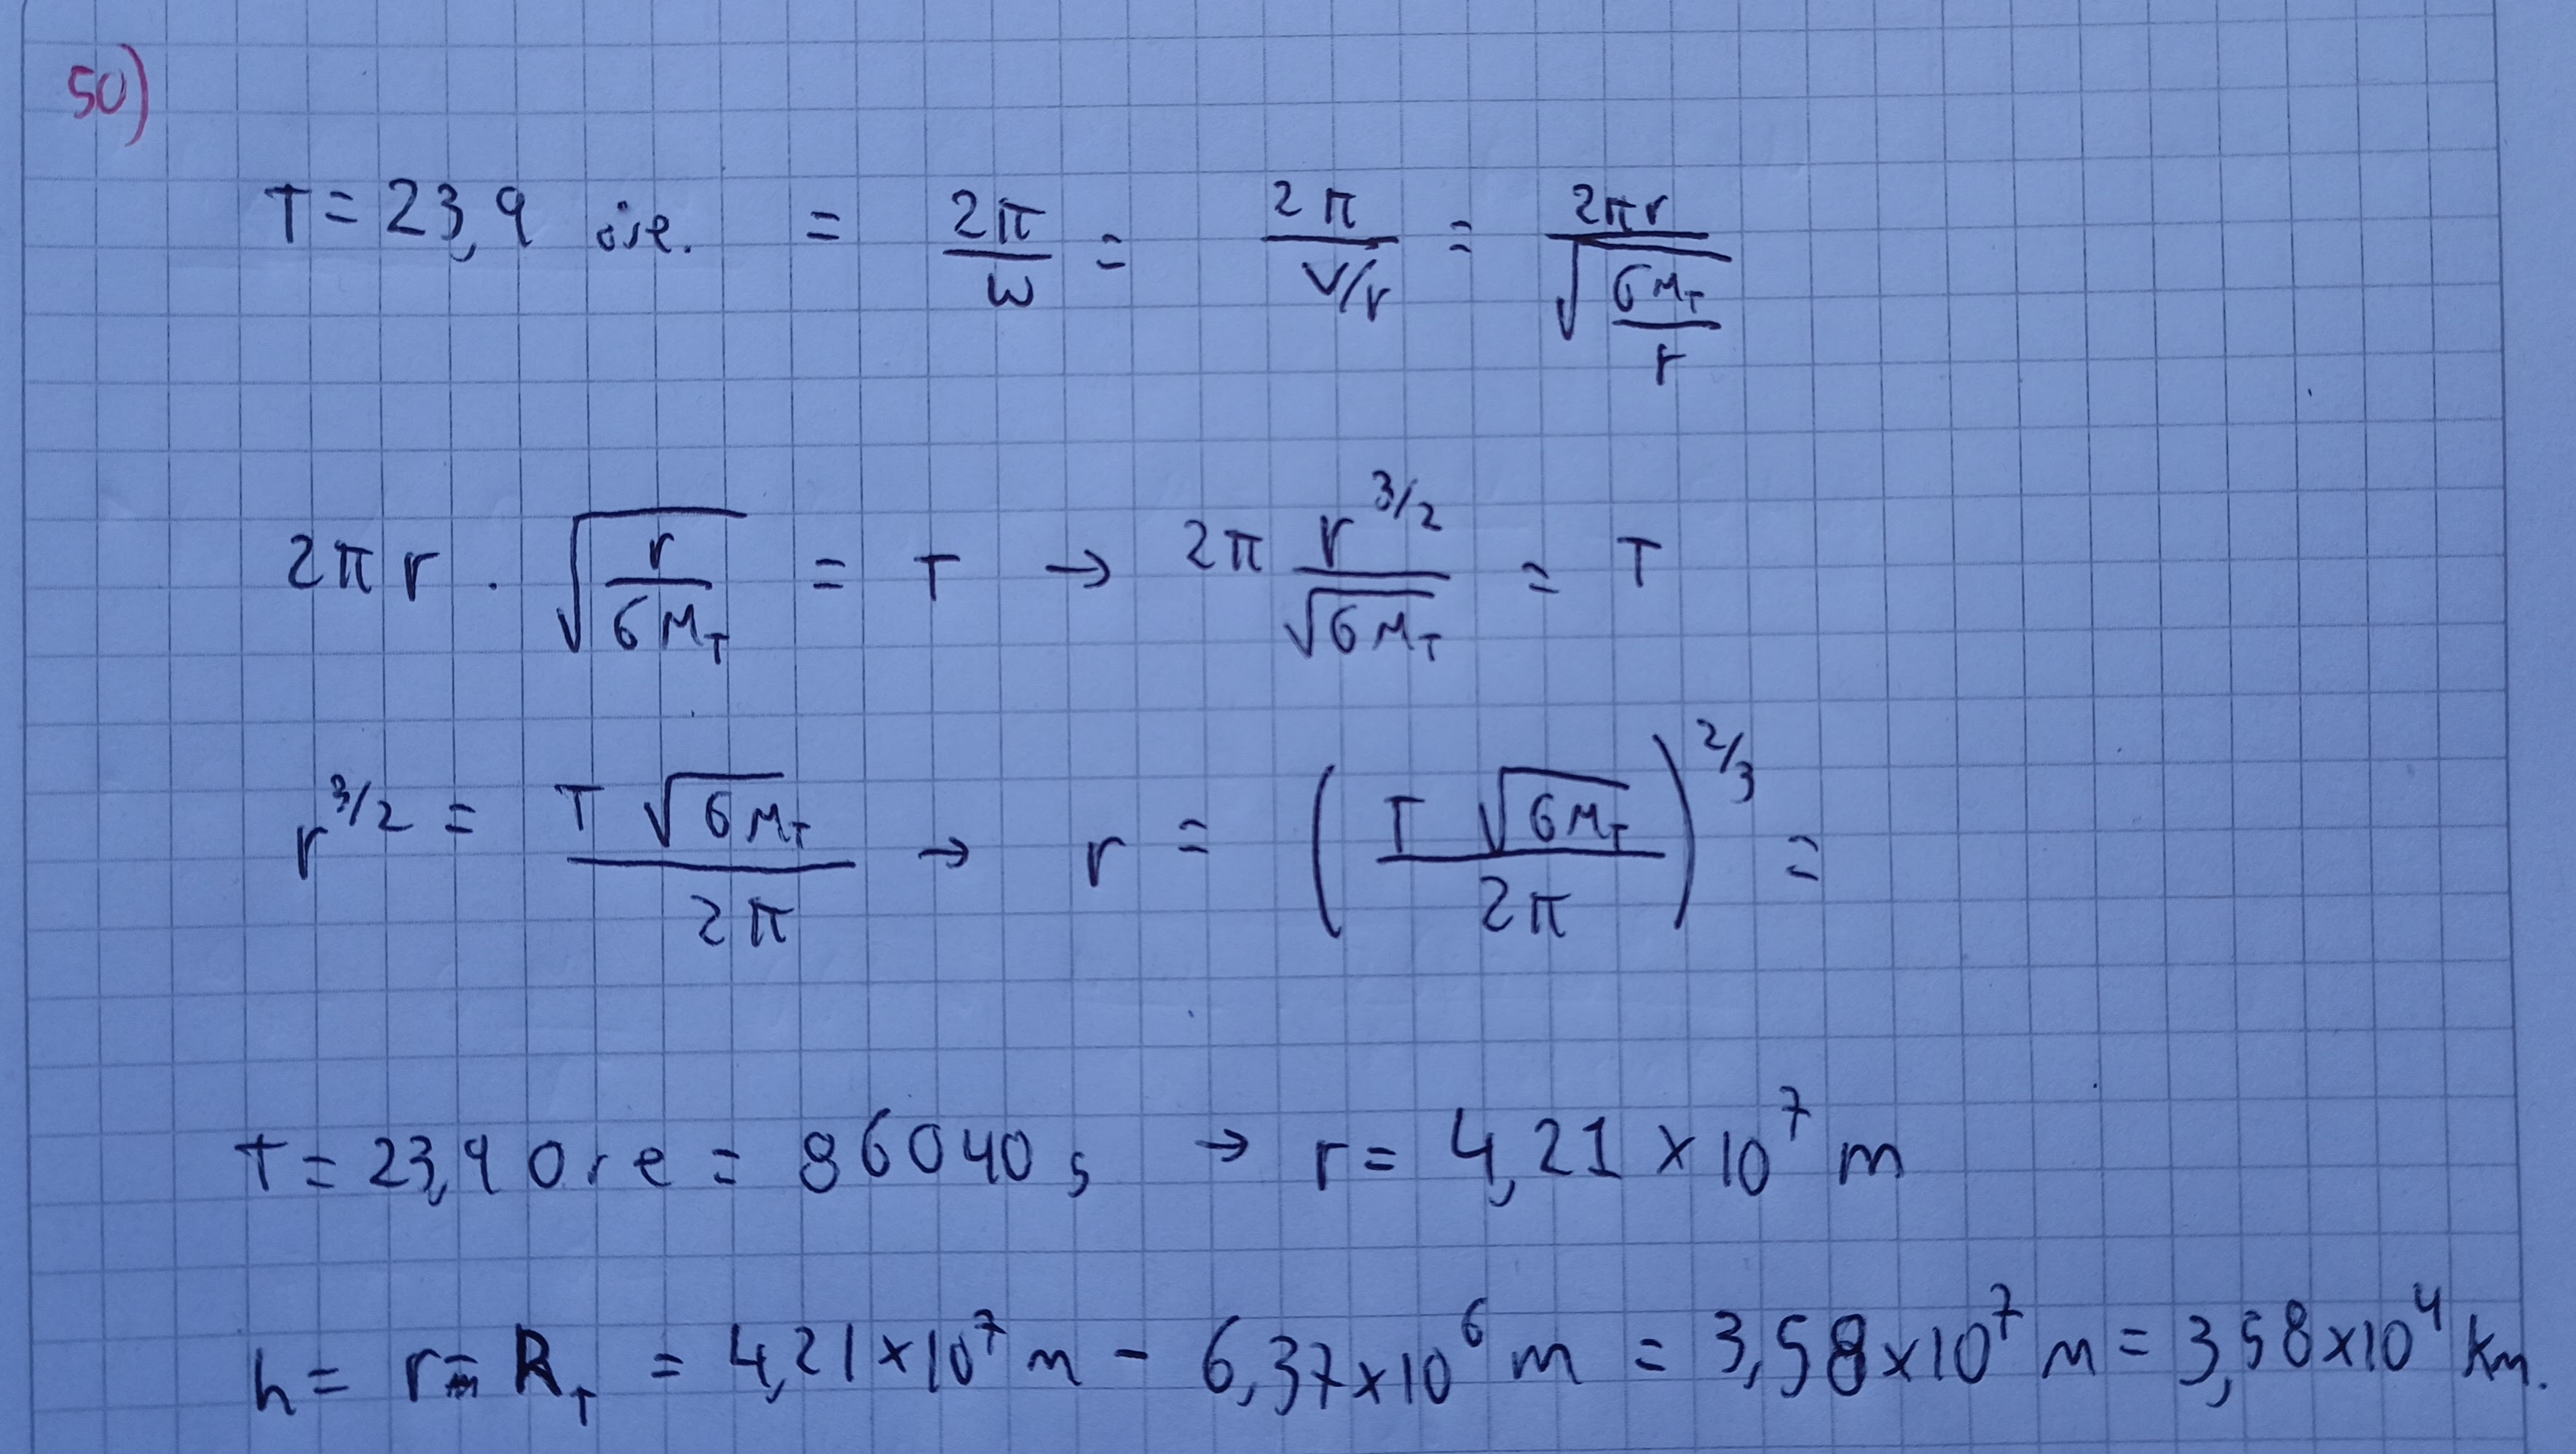 50)
T = 23,9 ore. = 2π/ω = 2π/(v/r) = 2πr/√(GM_T/r)
2πr · √(r/GM_T) = T → 2π r^(3/2)/√(GM_T) = T
r^(3/2) = T√(GM_T)/2π → r = (T√(GM_T)/2π)^(2/3) =
T = 23,9 ore = 86040 s → r = 4,21 × 10^7 m
h = r - R_T = 4,21 × 10^7 m - 6,37 × 10^6 m = 3,58 × 10^7 m = 3,58 × 10^4 km.